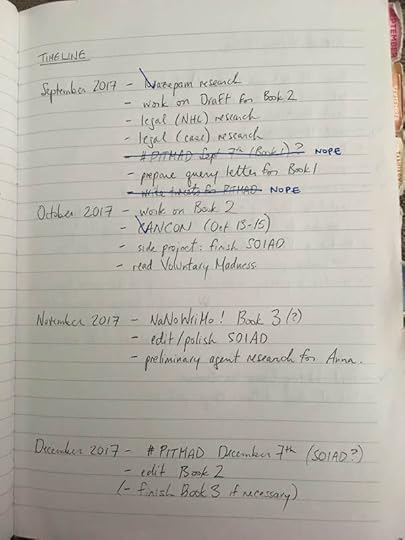 SEPTEMBER
TIMELINE
September 2017 - Lorazepam research
- work on Draft for Book 2
- legal (NHL) research
- legal (case) research
- #PITMAD Sept 7th (Book 1)? NOPE
- prepare query letter for Book 1
- write tweets for PITMAD NOPE
October 2017 - work on Book 2
- VANCON (Oct 13-15)
- side project: finish SOIAD
- read Voluntary Madness
November 2017 - NaNoWriMo! Book 3 (?)
- edit/polish SOIAD
- preliminary agent research for Anna.
December 2017 - #PITMAD December 7th (SOIAD?)
- edit Book 2
(- finish Book 3 if necessary)